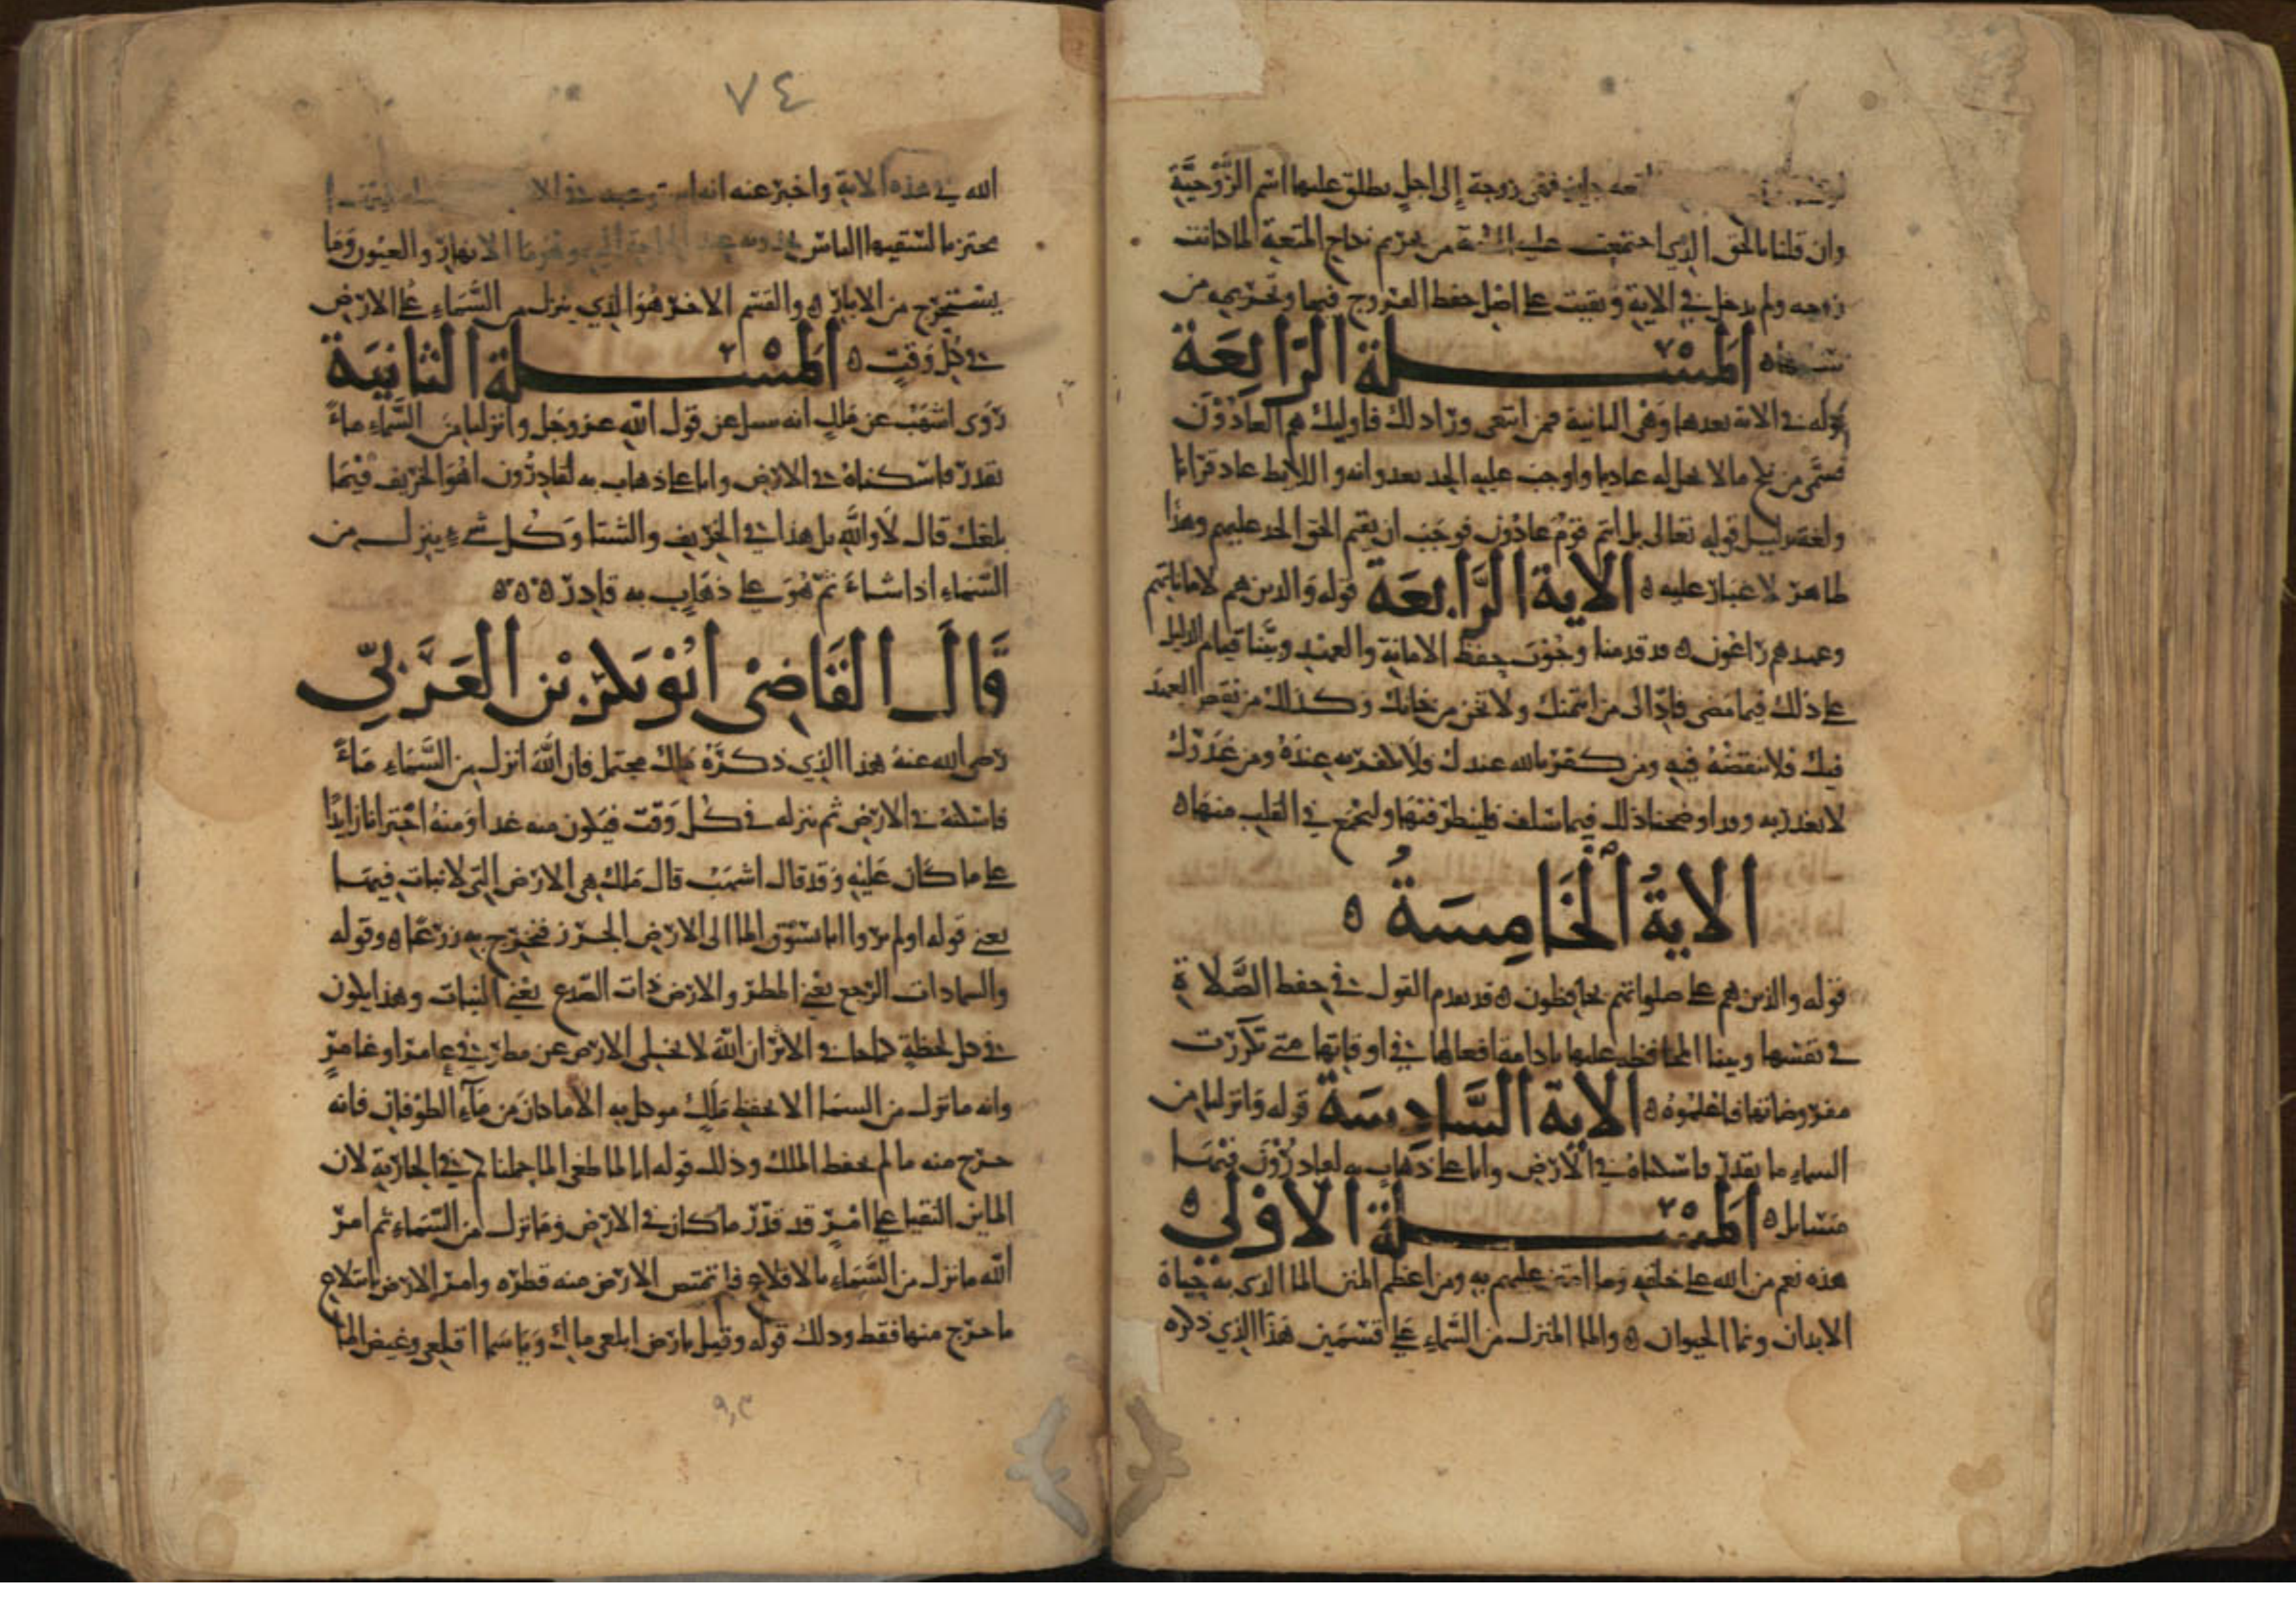 جايز فهي زوجة إلى اجل يطلق عليها اسم الزَّوْجيَّة
وان قلنا بالحق الذي اجتمعت عليه الامة من تحريم نكاح المتعة لما كانت
زوجه ولم يدخل في الاية وبقيت على اصل حفظ الفروج فيها وتحريمه من
المسلة الرَّابِعَة
قوله في الاية بعدها وهي الثانية فمن ابتغى ورا ذلك فاوليك هم العادُوْنَ
فسمى من نكح ما لا يحل له عاديا واوجب عليه الحد بعدوانه واللايط عاد قرانا
ولغة بدليل قوله تعالى بل انتم قومٌ عادُون فوجب ان يقيم الحق الحد عليهم وهذا
ظاهر لا غبار عليه ه الاية الرَّابعَة قوله والذين هم لاماناتهم
وعهدهم راعون ه قد قدمنا وجُوْب حفظ الامانة والعهد وبيَّنا قيام الدليل
على ذلك فيما مضى فادِّ الى من ايتمنك ولا تخن من خانك وكذلك من نقض العهد
فيك فلا تنقضْهُ فيه ومن كفر بالله عندك فلا تكفر به عندَهُ ومن غدَرَك
لا تغدر به وقد اوضحنا ذلك فيما سلف فلينظر فيها وليجمع في القلب منها ه
الايةُ الخَامِسَةُ ه
قوله والذين هم على صلواتهم يحافظون ه قد تقدم القول في حفظ الصَّلاة
في نفسها وبينا المحافظة عليها بادامة افعالها في اوقاتها متى تكررت
مفروضاتها فاعلموه ه الاية السَّادِسَة قوله وانزلنا من
السماء ماء بقدر فاسكناهُ في الارض وانا على ذهاب به لقادرُوْنَ فيْهَا
مسايل ه المسلة الاوْلى ه
هذه نعم من الله على خلقه ومما امتن عليهم به ومن اعظم المنن الما الذي به حياة
الابدان ونما الحيوان ه والما المنزل من السَّماء على قسمَين هذا الذي ذكره
٧٤
الله في هذه الاية واخبر عنه انه استودعه في الا
مختزنا لسقيها الناس يجدونه عند الحاجة اليه وهو ما الانهار والعيون وما
يستخرج من الابار ه والقسم الاخر هُوَ الذي ينزل من السَّماء على الارض
في كل وَقت ه المسْلة الثانيَة
رَوَى اشهَبْ عن ملك انه سيل عن قول الله عز وجل وانزلنا من السَّماء ماءً
بقدر فاسكناهُ في الارض وانا على ذهاب به لقادِرُون اهُوَ الخريف فيْمَا
بلغك قال لا والله بل هذا في الخريف والشتا وكل شيء ينزل من
السَّماء اذا شاءَ ثمَّ هُوَ على ذهَاب به قادِر ه ه ه
قَالَ القَاضِىْ ابُوْ بَكْر بْن العَرَبيّ
رضى الله عنه هذا الذي ذكرَهُ ملك محتمل فان اللهَ انزل من السَّماء مَاءً
فاسكنهُ في الارض ثم ينزله في كل وَقت فيَكون منه غذا وَمنهُ اختزانا زايدًا
على ما كان عَلَيْه وَقد قال اشهَبْ قال ملك هي الارض التي لا نبات فيهَا
يعني قوله اولم يروا انا نسوْق الما الى الارض الجرز فنخرج به زرعًا ه وقوله
والسما ذات الرجع يَعْني المطر والارض ذات الصَّدع يعْني النبات وهذا يكون
في كل لحظة كما جا في الاثر ان اللهَ لا يخلى الارض عن مطر في عامر او غامرٍ
وانه ما نزل من السما الا بحفظ ملكٍ موكل به الا ما كان من مَآء الطوْفان فانه
خرج منه ما لم يحفظ الملك وذلك قوله انا لما طغى الما حملناكم في الجارية لان
الماين التقيا على امْرٍ قد قدِّرَ ما كان في الارض وَمَا نزل من السَّماء ثم امر
الله ما نزل من السَّماء بالاقلاع فلم تمتص الارض منه قطرة وامر الارض بابتلاع
ما خرج منها فقط وذلك قوله وقيل يا ارض ابلعي ماك وَيَا سَما اقلعي وغيض الما